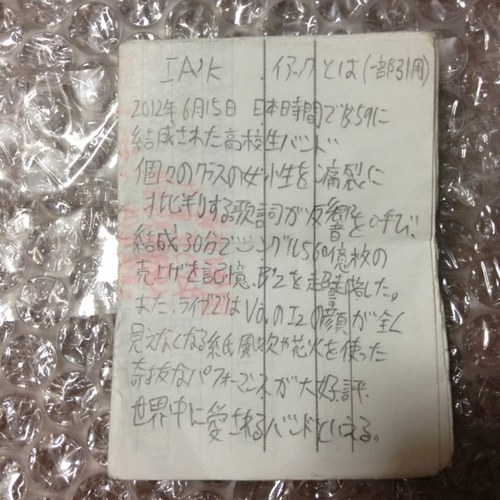 IA'K イアックとは(一部引用)
2012年6月15日 日本日時間で18:59に
結成された高校生バンド。
個々のクラスの女子生を痛裂に
批判する歌詞が反響を呼び、
結成30分でシングル560億枚の
売上げを記憶、B'zを超越した。
また、ライブではVo.のIzの顔が全く
見えなくなる紙風吹や花火を使った
奇抜なパフォーマンスが大好評。
世界中に愛されるバンドといえる。